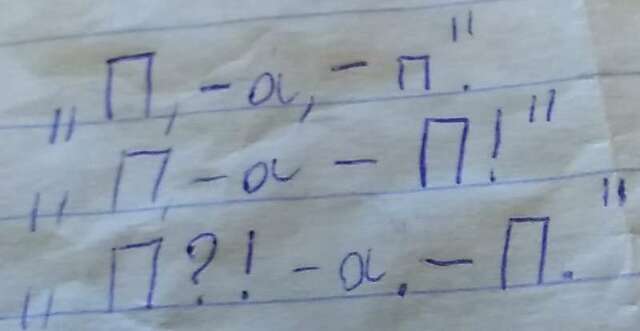 „П, - а, - п."
„П, - а - П!"
„П?! - а. - П."